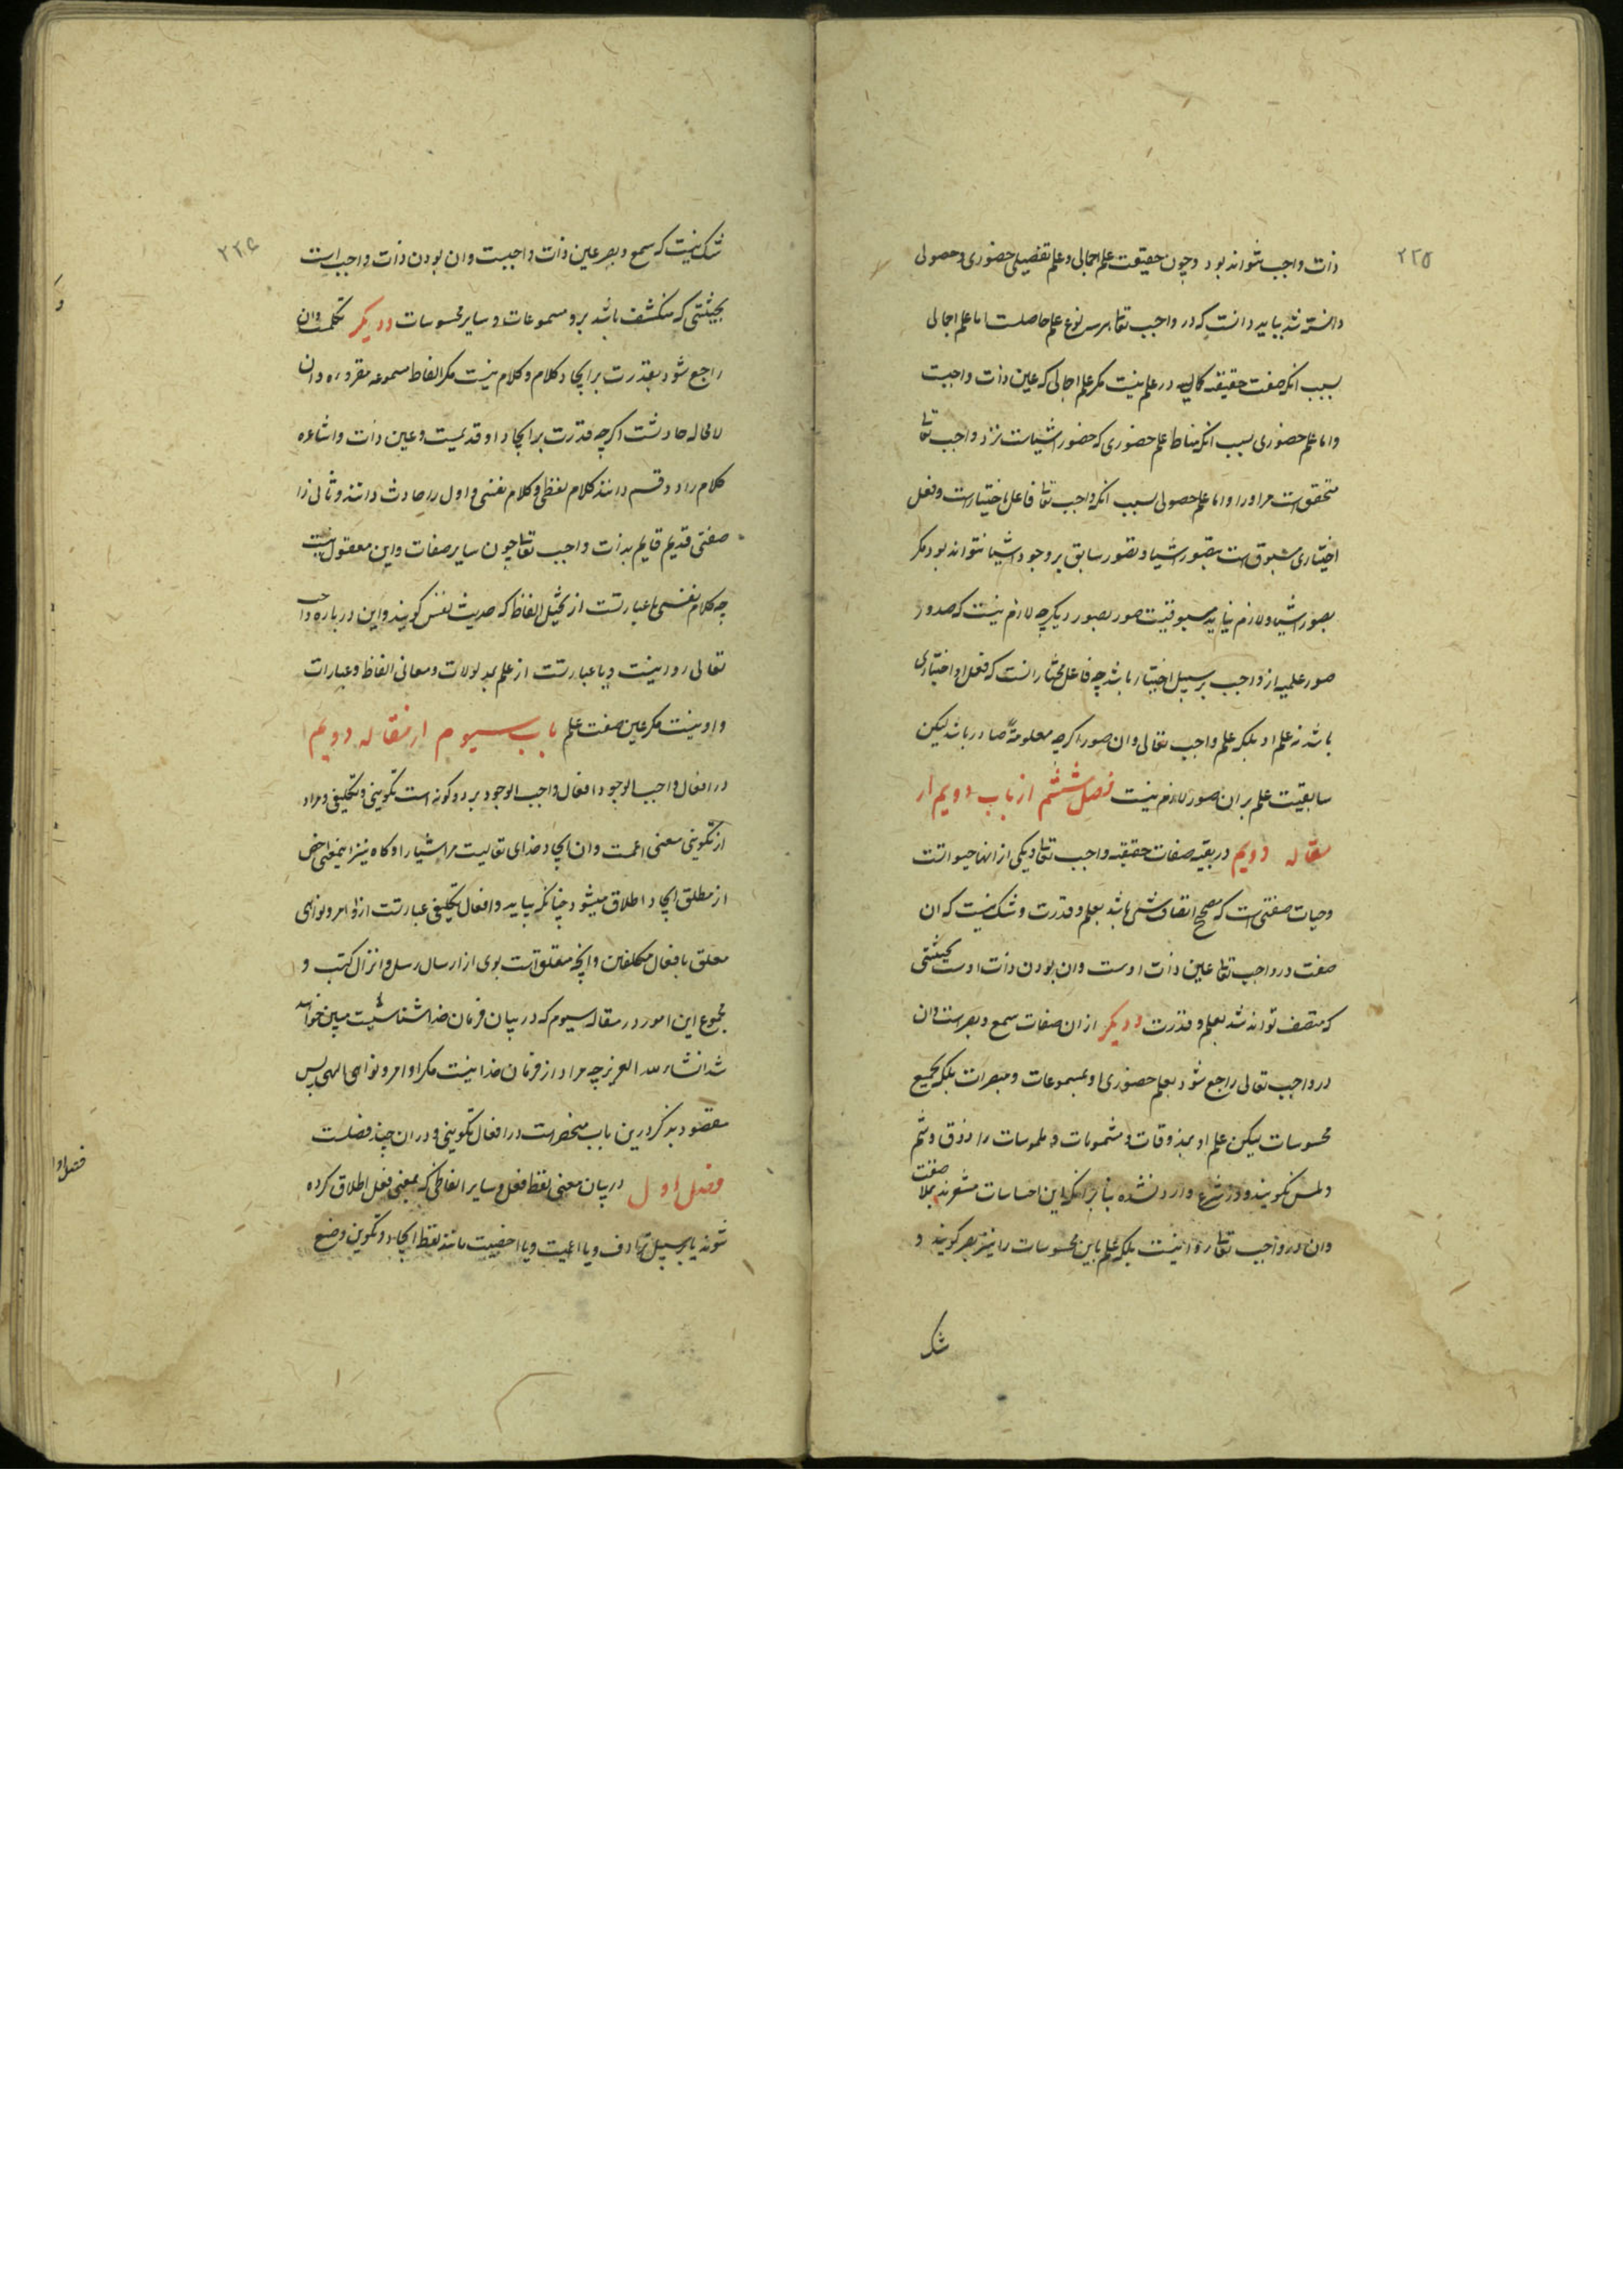 ۲۲۵
ذات واجب نتواند بود و چون حقیقت علم اجمالی و علم تفصیلی حضوری و حصولی
دانسته شد بباید دانست که در واجب تعا هر سه نوع علم حاصلست اما علم اجمالی
بسبب انکه صفت حقیقیه کمالیه در علم نیست مکر علم اجمالی که عین ذات واجبست
واما علم حضوری بسبب انکه مناط علم حضوری که حضور اشیاست نزد واجب تعا
متحقق است مر او را واما علم حصولی بسبب انکه واجب تعا فاعل باختیار است و فعل
اختیاری مسبوق است بتصور اشیا و تصور سابق بر وجود اشیا نتواند بود مکر
بصور اشیا و لازم نیاید مسبوقیت صور بصور دیکر چه لازم نیست که صدور
صور علمیه از واجب بر سبیل اختیار باشد چه فاعل مختار انست که فعل او اختیاری
باشد نه علم او بلکه علم واجب تعالی وان صور اکرچه معلومة صادر باشد لیکن
سابقیت علم بر ان صور لازم نیست فصل ششم از باب دویم از
مقاله دویم در بقیه صفات حقیقیه واجب تعا و یکی از انها حیواتست
و حیات صفتی است که مصحح اتصاف شی باشد بعلم و قدرت و شک نیست که ان
صفت در واجب تعا عین ذات اوست وان بودن ذات اوست بحیثیتی
که متصف تواند شد بعلم و قدرت و دیکر از ان صفات سمع و بصرست وان
در واجب تعالی راجع شود بعلم حضوری او بمسموعات و مبصرات بلکه بجمیع
محسوسات لیکن علم او بمذوقات و مشمومات و ملموسات را ذوق و شم
و لمس نکویند و در شرع وارد نشده بنا بر انکه این احساسات مشعرند بملا صفت
وان در واجب تعا روا نیست بلکه علم باین محسوسات را نیز بصر کویند و
شک
۲۲۶
شک نیست که سمع و بصر عین ذات واجبست وان بودن ذات واجب است
بحیثیتی که منکشف باشد برو مسموعات و سایر محسوسات و دیکر تکلمست وان
راجع شود بقدرت بر ایجاد کلام و کلام نیست مکر الفاظ مسموعه مقروره وان
لا محاله حادثست اکرچه قدرت بر ایجاد او قدیمست و عین ذات و اشاعره
کلام را دو قسم دانند کلام لفظی و کلام نفسی و اول را حادث دانند و ثانی را
صفتی قدیم قایم بذات واجب تعا چون سایر صفات و این معقول نیست
چه کلام نفسی یا عبارتست از تخیل الفاظ که حدیث نفس کویند و این در باره واجب
تعالی روا نیست و یا عبارتست از علم بمدلولات و معانی الفاظ و عبارات
و او نیست مکر عین صفت علم باب سیوم از مقاله دویم
در افعال واجب الوجود افعال واجب الوجود بر دو کونه است تکوینی و تکلیفی و مراد
از تکوینی معنی اعمست وان ایجاد خدای تعالیست مر اشیا را و کاه نیز اینمعنی اخص
از مطلق ایجاد اطلاق میشود چنانکه بباید و افعال تکلیفی عبارتست از اوامر و نواهی
معلق بافعال مکلفین و انچه متعلق است بوی از ارسال رسل و انزال کتب و
مجموع این امور در مقاله سیوم که در بیان فرمان خدا شناسیست مبین خواهد
شد انشاء الله العزیز چه مراد از فرمان خدا نیست مکر اوامر و نواهی الهی پس
مقصود بذکر درین باب منحصر است در افعال تکوینی و در ان چند فصلست
فصل اول در بیان معنی لفظ فعل و سایر الفاظی که بمعنی فعل اطلاق کرده
شوند یا بر سبیل ترادف و یا اعمیت و یا اخصیت مانند لفظ ایجاد و تکوین و صنع
فصل اول